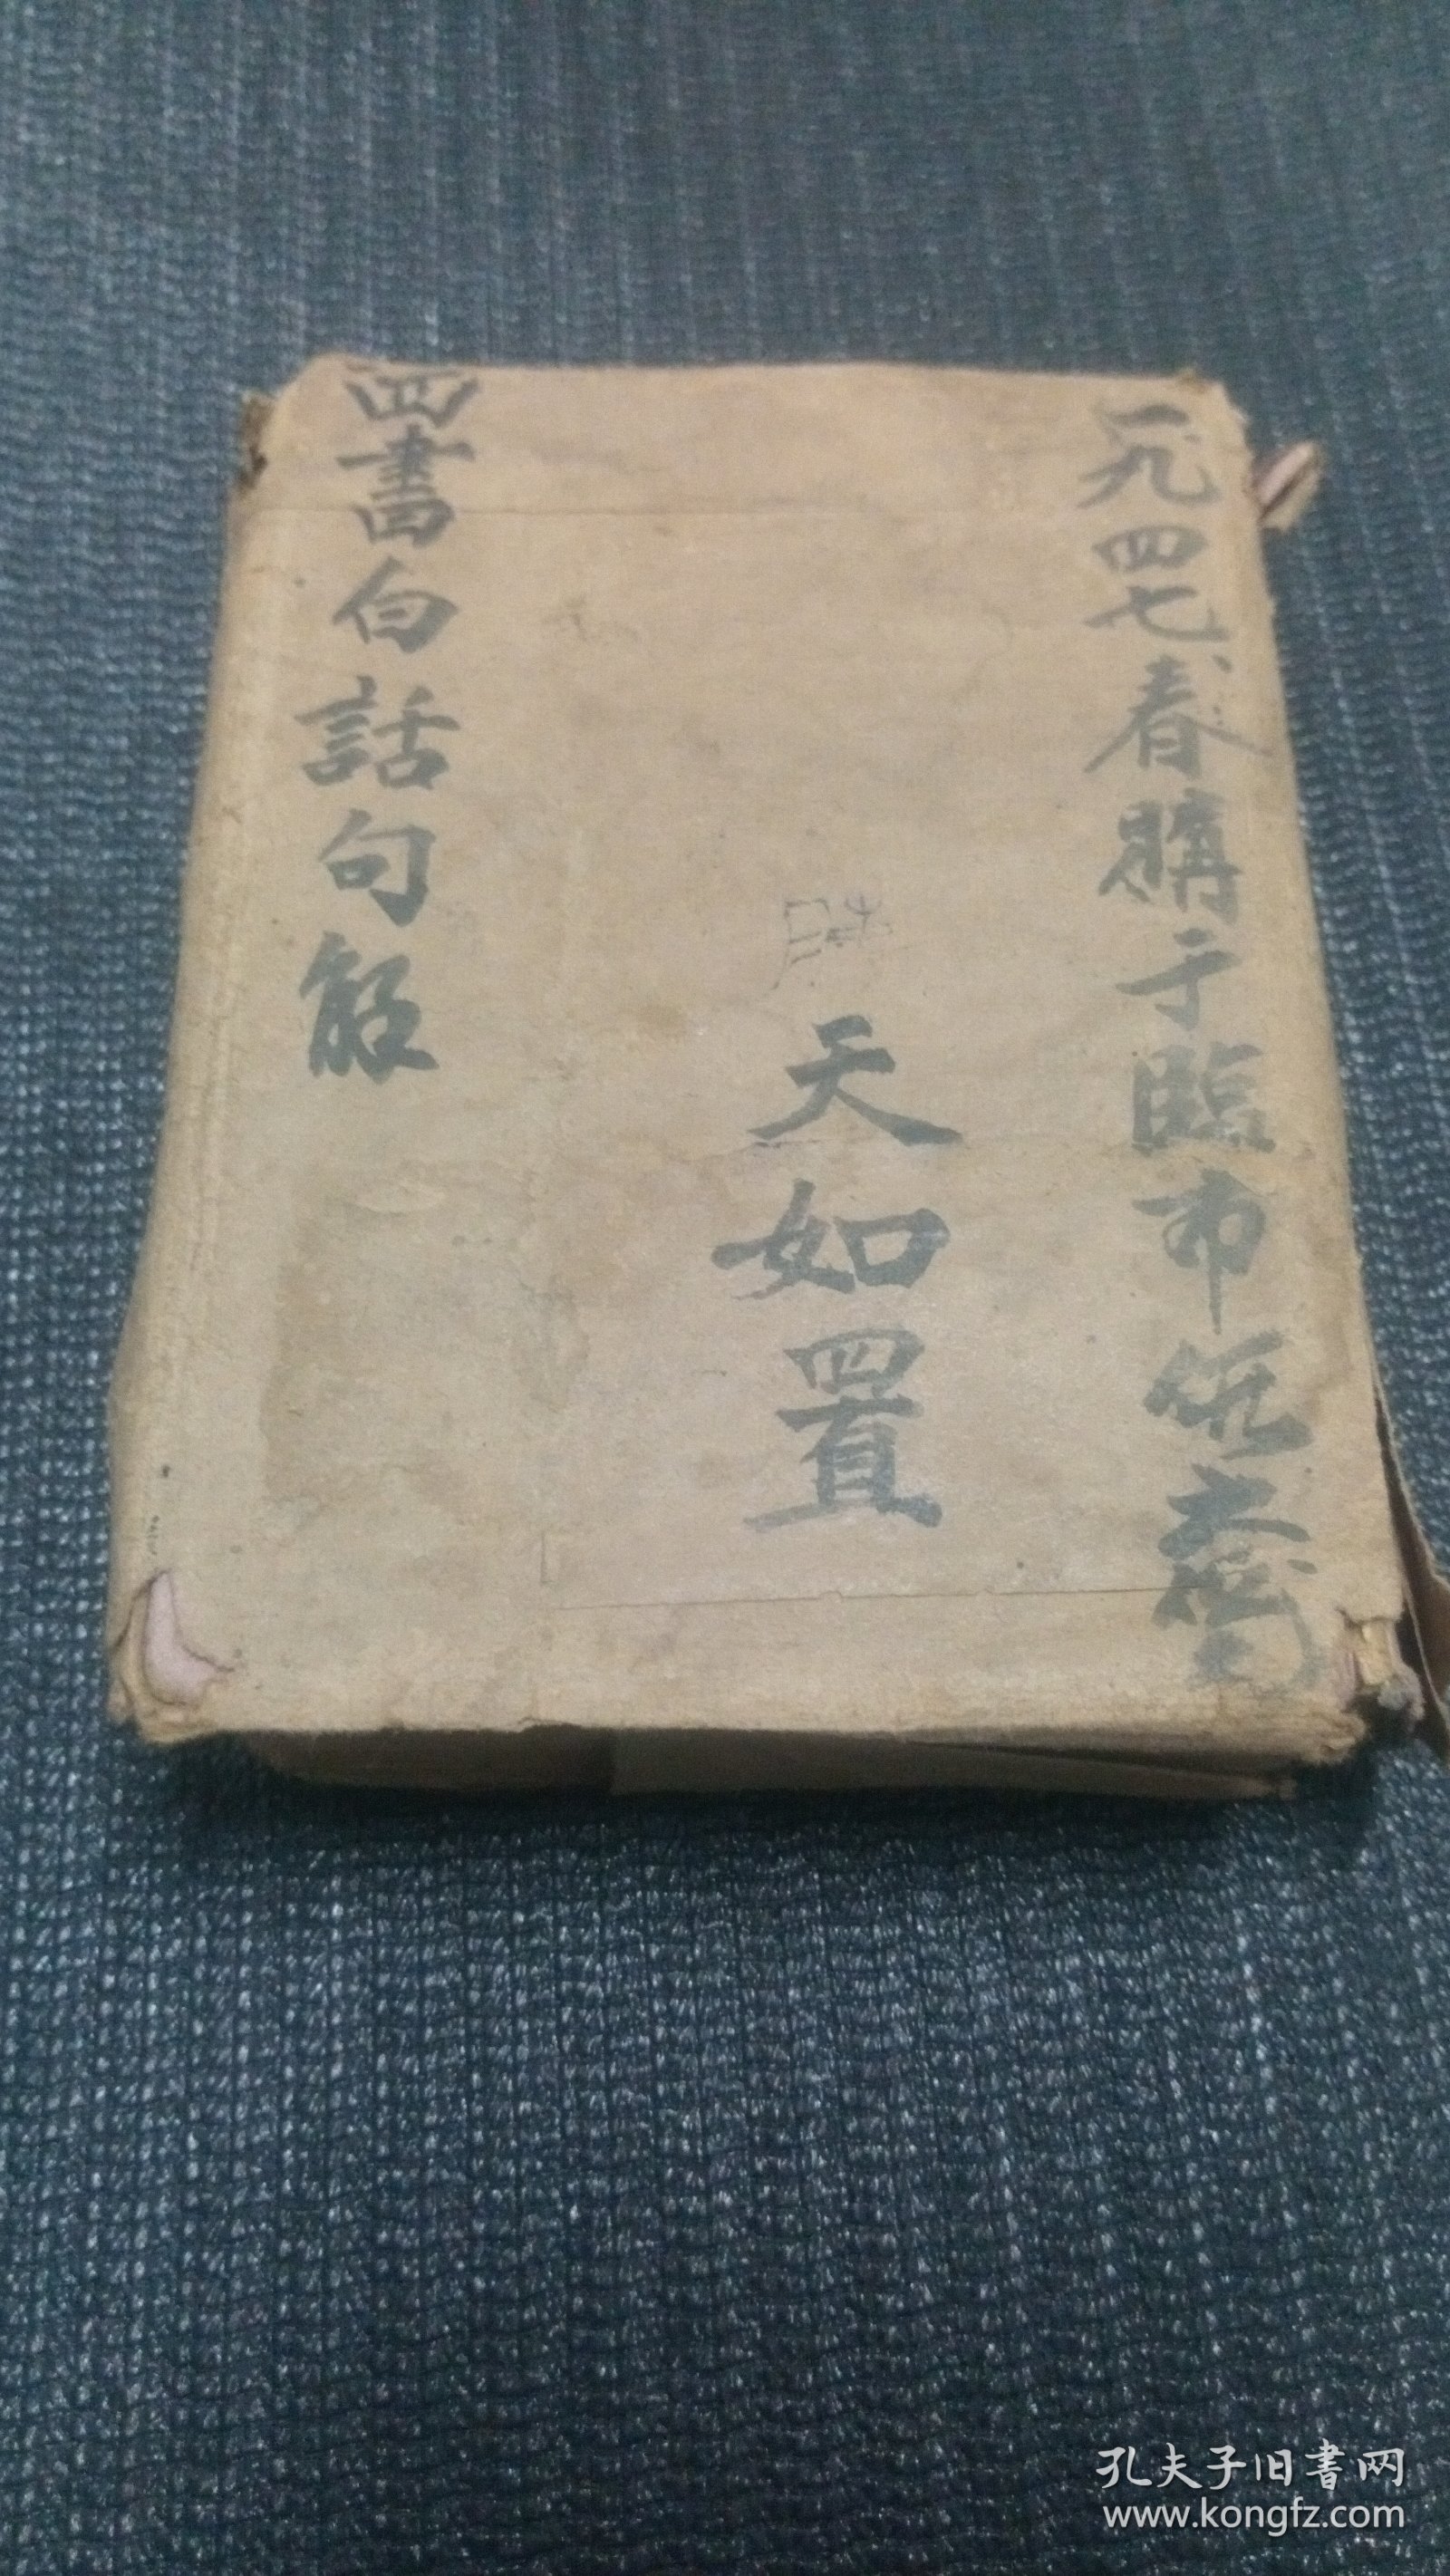 一九四七、春購于臨市
天如置
四書白話句解
孔夫子旧書网
www.kongfz.com